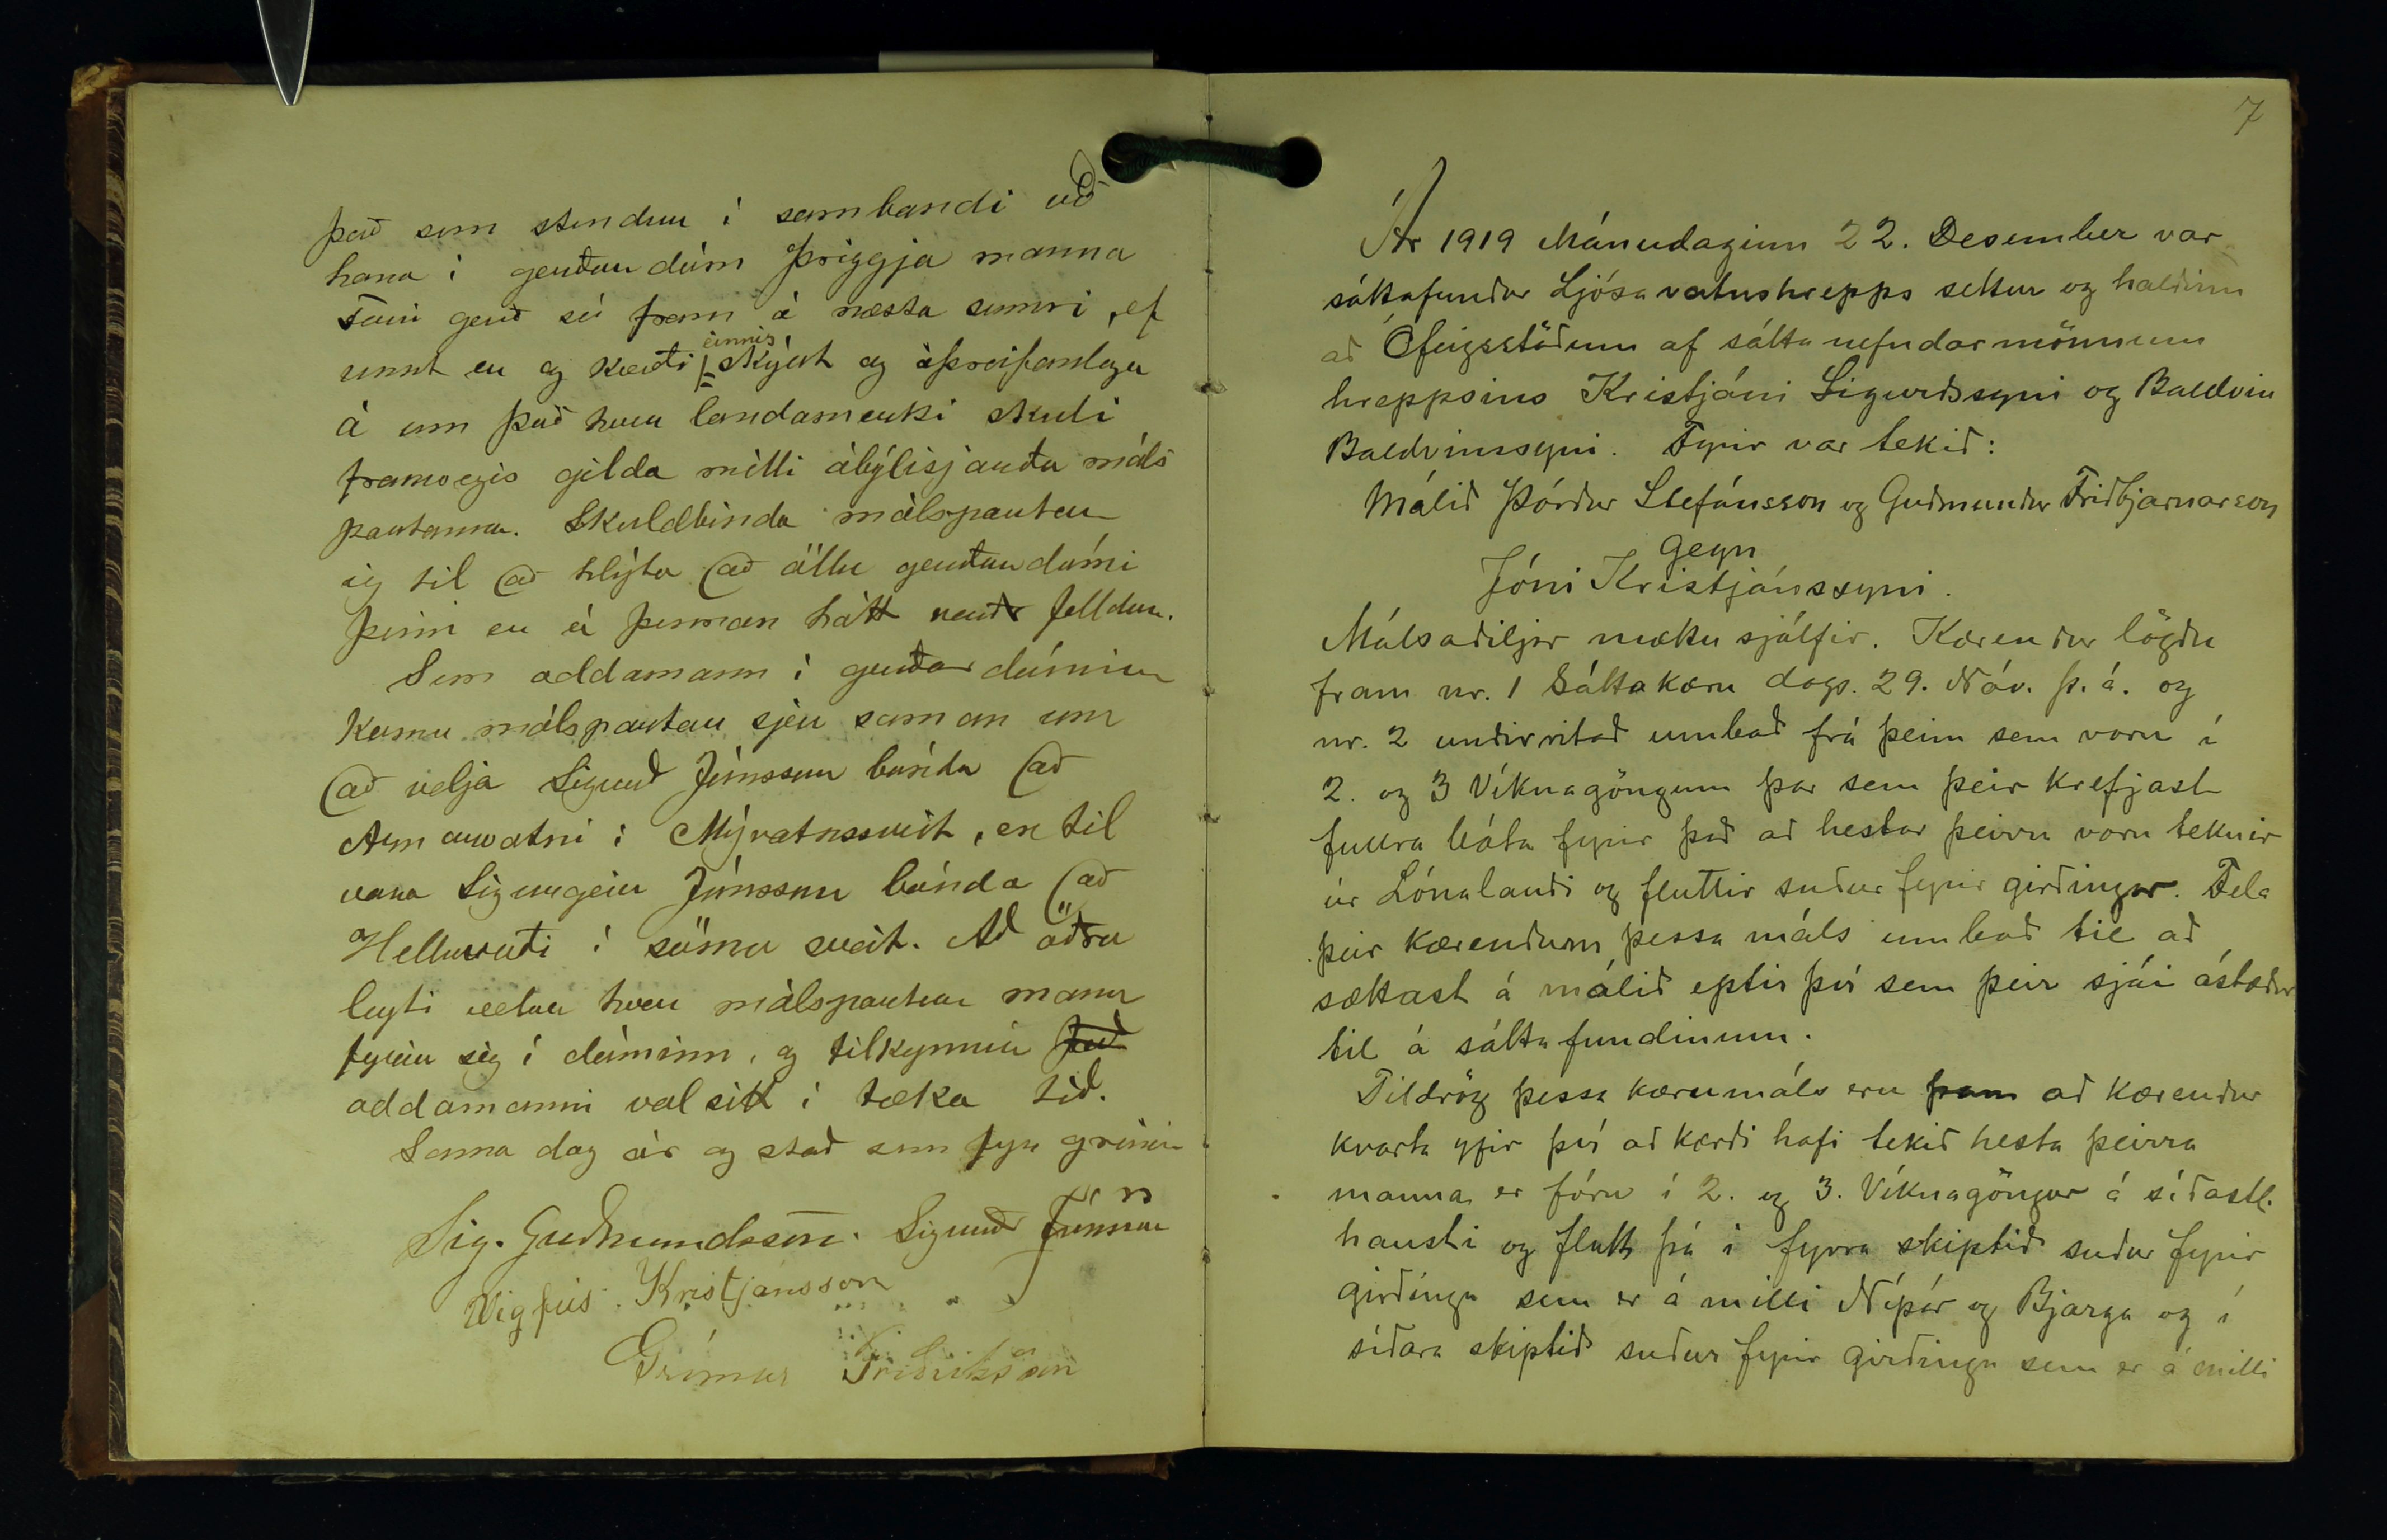 það sem stendur í sambandi við
hana í gerðardóm þriggja manna
Fari gerð sú fram á næsta sumri, ef
unnt er og kveði einnig skýrt og áþreifanlega
á um það hver landamerki skuli
framvegis gilda milli ábýlisjarða máls
partanna. Skuldbinda málspartar
sig til að hlýta að öllu gerðardómi
þeim er á þennan hátt verðr felldur.
Sem oddamann í gerðardóminn
komu málspartar sjer saman um
að velja Sigurð Jónsson bónda að
Arnarvatni í Mývatnssveit, en til
vara Sigurgeir Jónsson bónda að
Helluvaði í sömu sveit. Að öðru
leyti velur hver málspartur mann
fyrir sig í dóminn, og tilkynnir það
oddamanni val sitt í tæka tíð.
Sama dag ár og stað sem fyr greinir
Sig. Guðmundsson. Sigurðr Jónsson
Vigfús Kristjánsson
Grímur Friðriksson
7
Ár 1919 Mánudaginn 22. Desember var
sáttafundur Ljósavatnshrepps settur og haldinn
að Ófeigsstöðum af sáttanefndarmönnum
hreppsins Kristjáni Sigurðssyni og Baldvin
Baldvinssyni. Fyrir var tekið:
Málið Þórður Stefánsson og Guðmundur Friðbjarnarson
gegn
Jóni Kristjánssyni.
Málsaðiljar mættu sjálfir. Kærendur lögðu
fram nr. 1 Sáttakæru dags. 29. Nóv. þ.á. og
nr. 2 undirritað umboð frá þeim sem voru í
2. og 3 Víknagöngum þar sem þeir krefjast
fullra bóta fyrir það að hestar þeirra voru teknir
úr Lónalandi og fluttir suður fyrir girðingar. Fela
þeir kærendum þessa máls umboð til að
sættast á málið eptir því sem þeir sjái ástæður
til á sáttafundinum.
Tildrög þessa kærumáls eru fram að kærendur
kvarta yfir því að kærði hafi tekið hesta þeirra
manna er fóru í 2. og 3. Víknagöngur á síðastl.
hausti og flutt þá í fyrra skiptið suður fyrir
girðingu sem er á milli Nípár og Bjarga og í
síðara skiptið suður fyrir girðingu sem er á milli